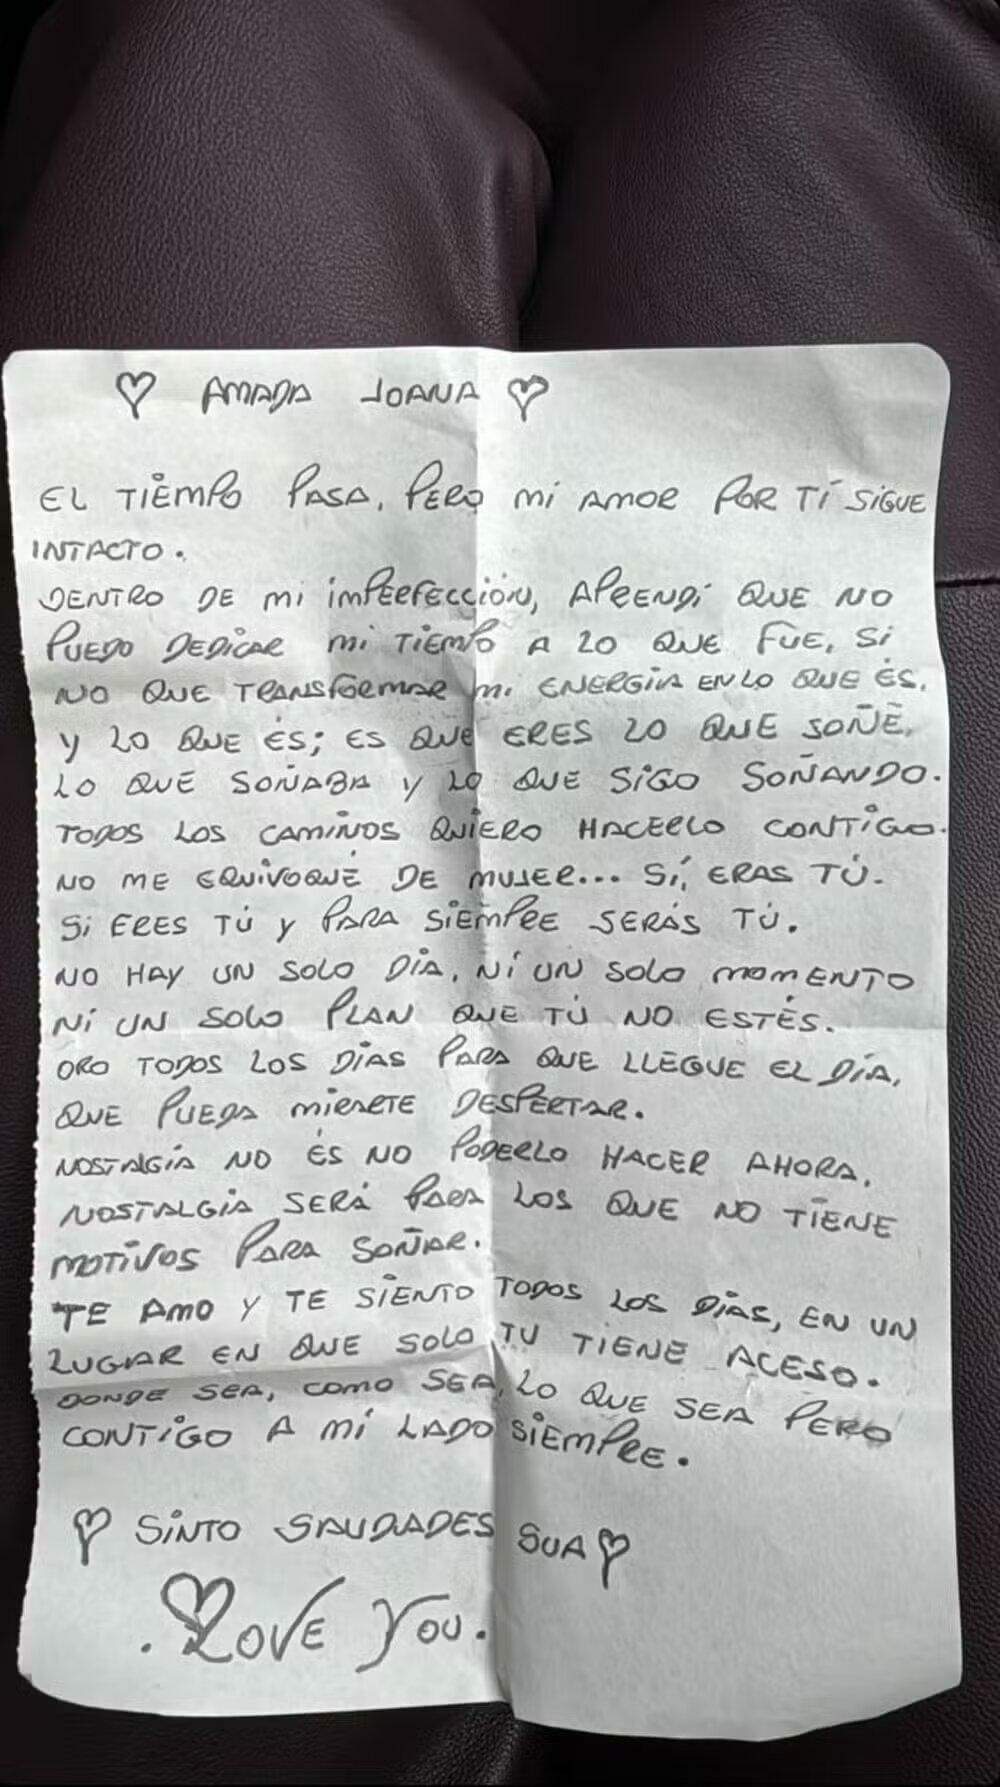 ♡ AMADA JOANA ♡
EL TIEMPO PASA, PERO MI AMOR POR TÍ SIGUE
INTACTO.
DENTRO DE MI IMPERFECCIÓN, APRENDI QUE NO
PUEDO DEDICAR MI TIEMPO A LO QUE FUE, SI
NO QUE TRANSFORMAR MI ENERGÍA EN LO QUE ÉS.
Y LO QUE ÉS; ES QUE ERES LO QUE SOÑÉ,
LO QUE SOÑABA Y LO QUE SIGO SOÑANDO.
TODOS LOS CAMIÑOS QUIERO HACERLO CONTIGO.
NO ME EQUIVOQUÉ DE MUJER... SÍ, ERAS TÚ.
SI ERES TÚ Y PARA SIEMPRE SERÁS TÚ.
NO HAY UN SOLO DÍA, NÍ UN SOLO MOMENTO
NÍ UN SOLO PLAN QUE TÚ NO ESTÉS.
ORO TODOS LOS DÍAS PARA QUE LLEGUE EL DÍA,
QUE PUEDA MIRARTE DESPERTAR.
NOSTALGÍA NO ÉS NO PODERLO HACER AHORA,
NOSTALGIA SERÁ PARA LOS QUE NO TIENE
MOTIVOS PARA SOÑAR.
TE AMO Y TE SIENTO TODOS LOS DÍAS, EN UN
LUGAR EN QUE SOLO TU TIENE ACESO.
DONDE SEA, COMO SEA, LO QUE SEA PERO
CONTIGO A MÍ LADO SIEMPRE.
♡ SINTO SAUDADES SUA ♡
. LOVE YOU.